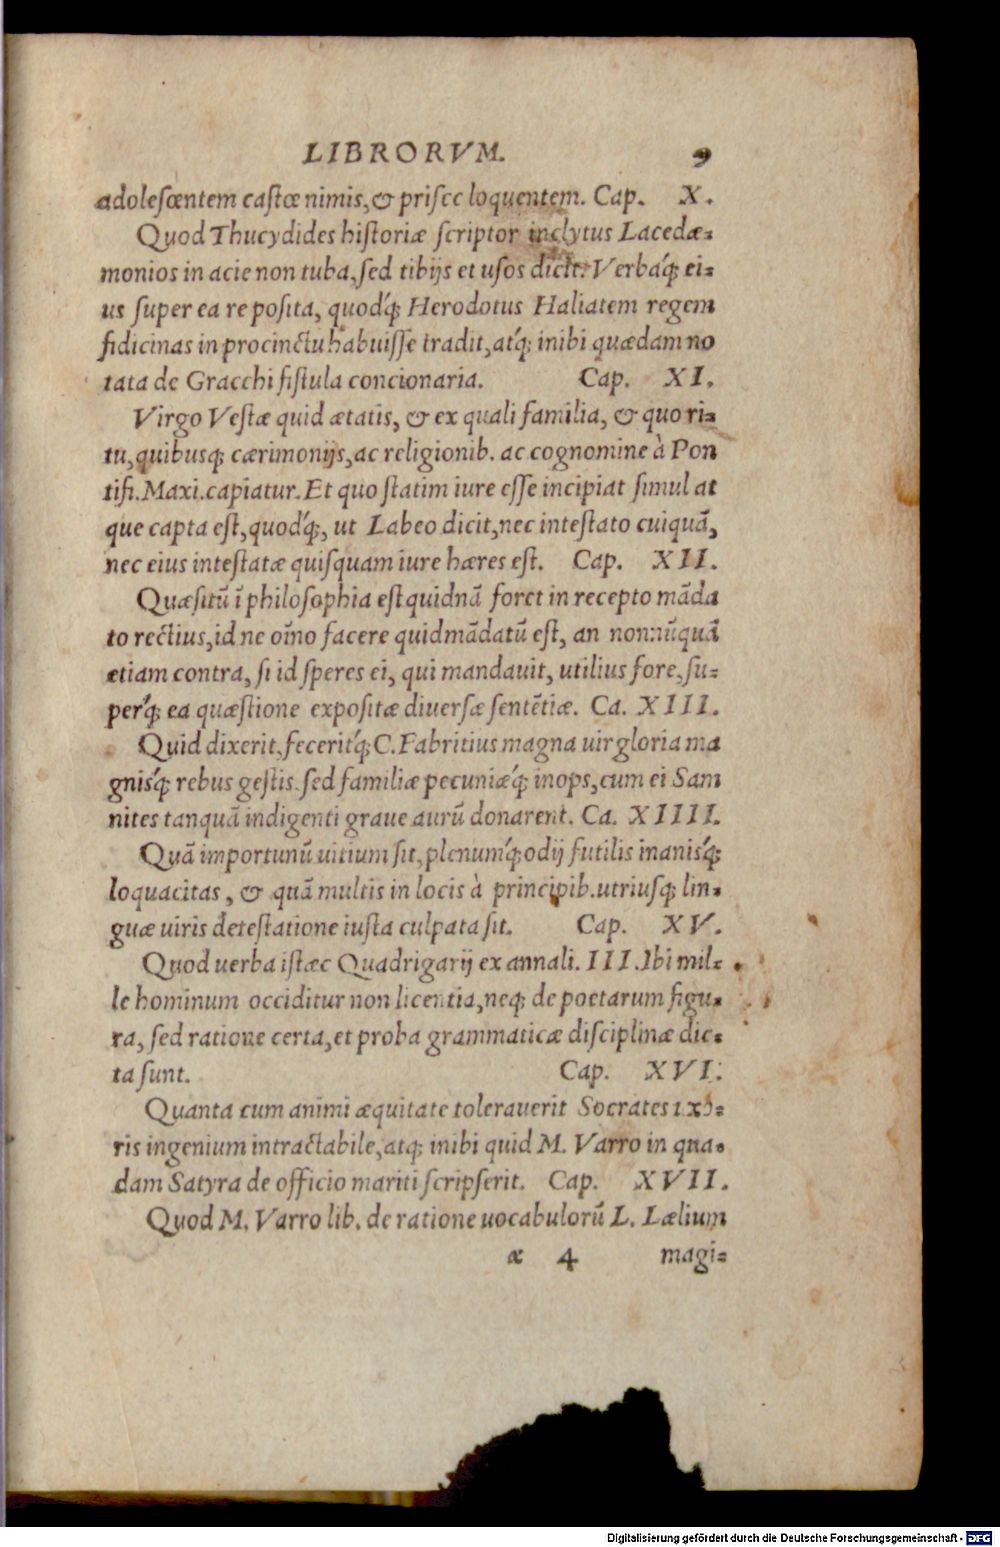 LIBRORVM. 9
adolescentem castæ nimis, & prisce loquentem. Cap. X.
Quod Thucydides historiæ scriptor inclytus Lacedæ=
monios in acie non tuba, sed tibijs et usos dicit: Verbaq́; ei=
us super ea re posita, quodq́; Herodotus Haliatem regem
fidicinas in procinctu habuisse tradit, atq́; inibi quædam no
tata de Gracchi fistula concionaria. Cap. XI.
Virgo Vestæ quid ætatis, & ex quali familia, & quo ri=
tu, quibusq; cærimonijs, ac religionib. ac cognomine à Pon
tifi. Maxi. capiatur. Et quo statim iure esse incipiat simul at
que capta est, quodq́;, ut Labeo dicit, nec intestato cuiquã,
nec eius intestatæ quisquam iure hæres est. Cap. XII.
Quæsitũ ĩ philosophia est quidnã foret in recepto mãda
to rectius, id ne oĩno facere quid mãdatũ est, an nonnũquã
etiam contra, si id speres ei, qui mandauit, utilius fore, su=
perq́; ea quæstione expositæ diuersæ sentẽtiæ. Ca. XIII.
Quid dixerit, feceritq́; C. Fabritius magna uir gloria ma
gnisq́; rebus gestis. sed familiæ pecuniæq́; inops, cum ei Sam
nites tanquã indigenti graue aurũ donarent. Ca. XIIII.
Quã importunũ uitium sit, plenumq́; odij futilis inanisq́;
loquacitas, & quã multis in locis à principib. utriusq; lin=
guæ uiris detestatione iusta culpata sit. Cap. XV.
Quod uerba istæc Quadrigarij ex annali. III. Ibi mil=
le hominum occiditur non licentia, neq; de poetarum figu=
ra, sed ratione certa, et proba grammaticæ disciplinæ dic=
ta sunt. Cap. XVI.
Quanta cum animi æquitate tolerauerit Socrates uxo=
ris ingenium intractabile, atq; inibi quid M. Varro in qua=
dam Satyra de officio mariti scripserit. Cap. XVII.
Quod M. Varro lib. de ratione uocabulorũ L. Lælium
æ 4 magi=
Digitalisierung gefördert durch die Deutsche Forschungsgemeinschaft - DFG